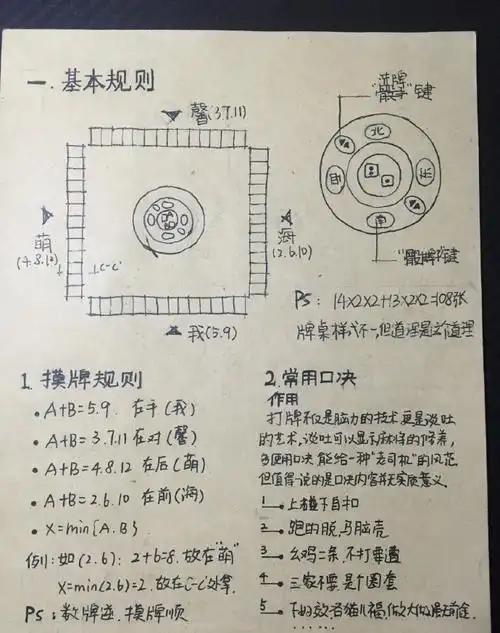 一. 基本规则
馨(3.7.11)
萌
(4.8.12)
C-C'
海
(2.6.10)
我(5.9)
洗牌
"骰子"键
北
西
东
南
键
PS: 14X2X2+13X2X2=108张
牌桌样式不一,但道理是这个道理
1. 摸牌规则
• A+B=5.9. 在手(我)
• A+B=3.7.11 在对(馨)
• A+B=4.8.12 在后(萌)
• A+B=2.6.10 在前(海)
• X=min{A.B}
例:如(2.6): 2+6=8. 放在"萌"
X=min(2.6)=2. 放在C-C'处拿.
PS: 数牌逆.摸牌顺
2. 常用口决
作用
打牌不仅是脑力的技术,更是谈吐
的艺术,谈吐可以显示教养的修养,
多使用口决,能给一种"老司机"的风范
但值得一说的是口决内容并无实质意义.
1 - 上碰下自扣
2 - 跑的脱,马脑壳
3 - 幺鸡二条,不打要遭
4 - 三家不要,是个圈套
5 -
......